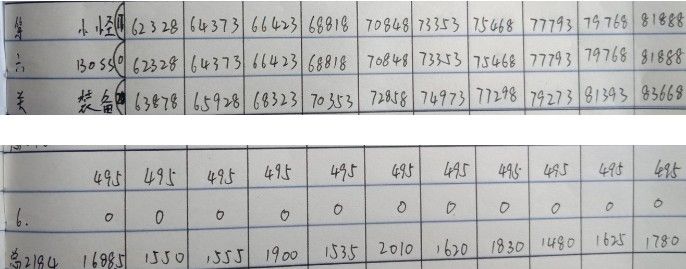 第 小怪 62328 64373 66423 68818 70848 73353 75468 77793 79768 81888
六 BOSS 62328 64373 66423 68818 70848 73353 75468 77793 79768 81888
关 装备 63878 65928 68323 70353 72858 74973 77298 79273 81393 83668
495 495 495 495 495 495 495 495 495 495 495
6. 0 0 0 0 0 0 0 0 0 0 0
2184 16885 1550 1555 1900 1535 2010 1620 1830 1480 1625 1780